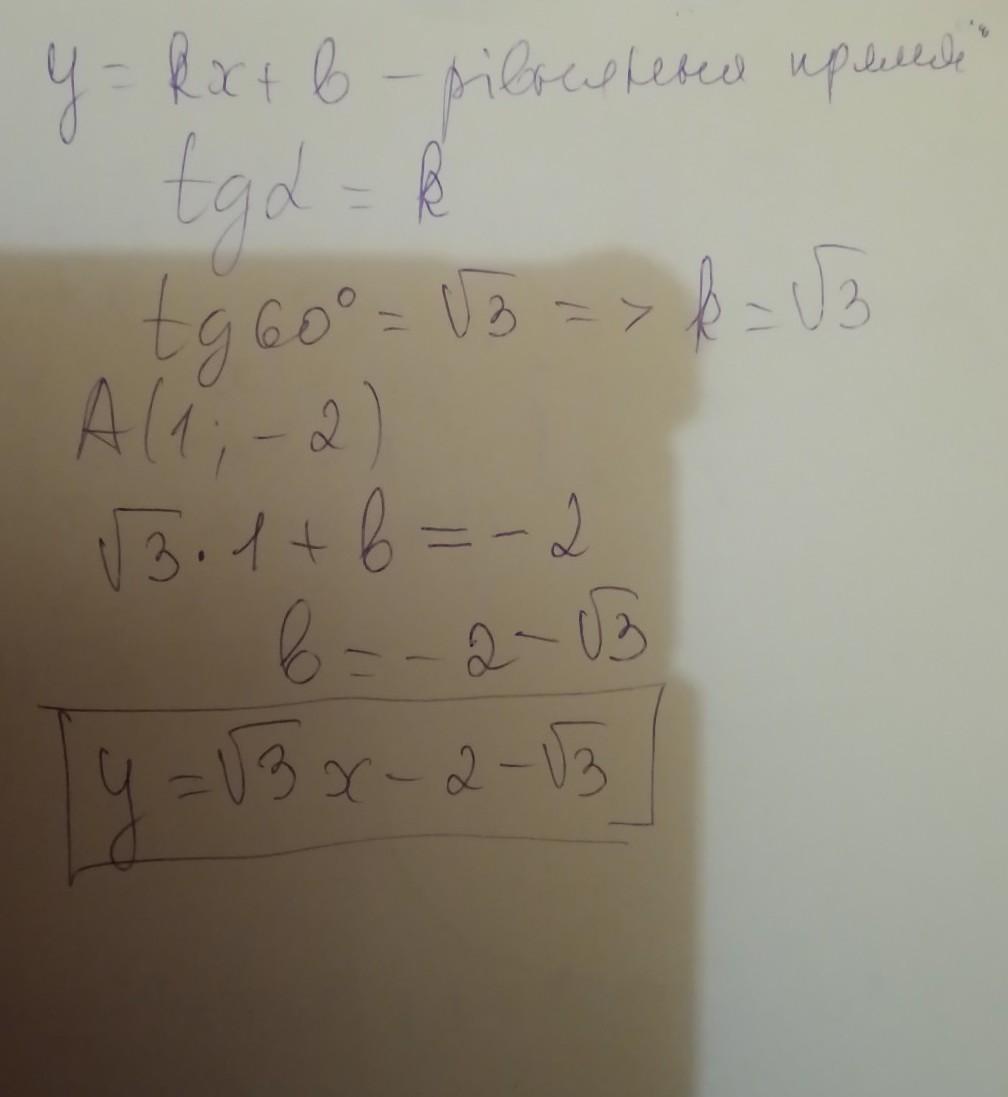 y = kx + b - рівняння прямої
tgα = k
tg60° = √3 => k = √3
A(1; -2)
√3 · 1 + b = -2
b = -2 - √3
y = √3 x - 2 - √3